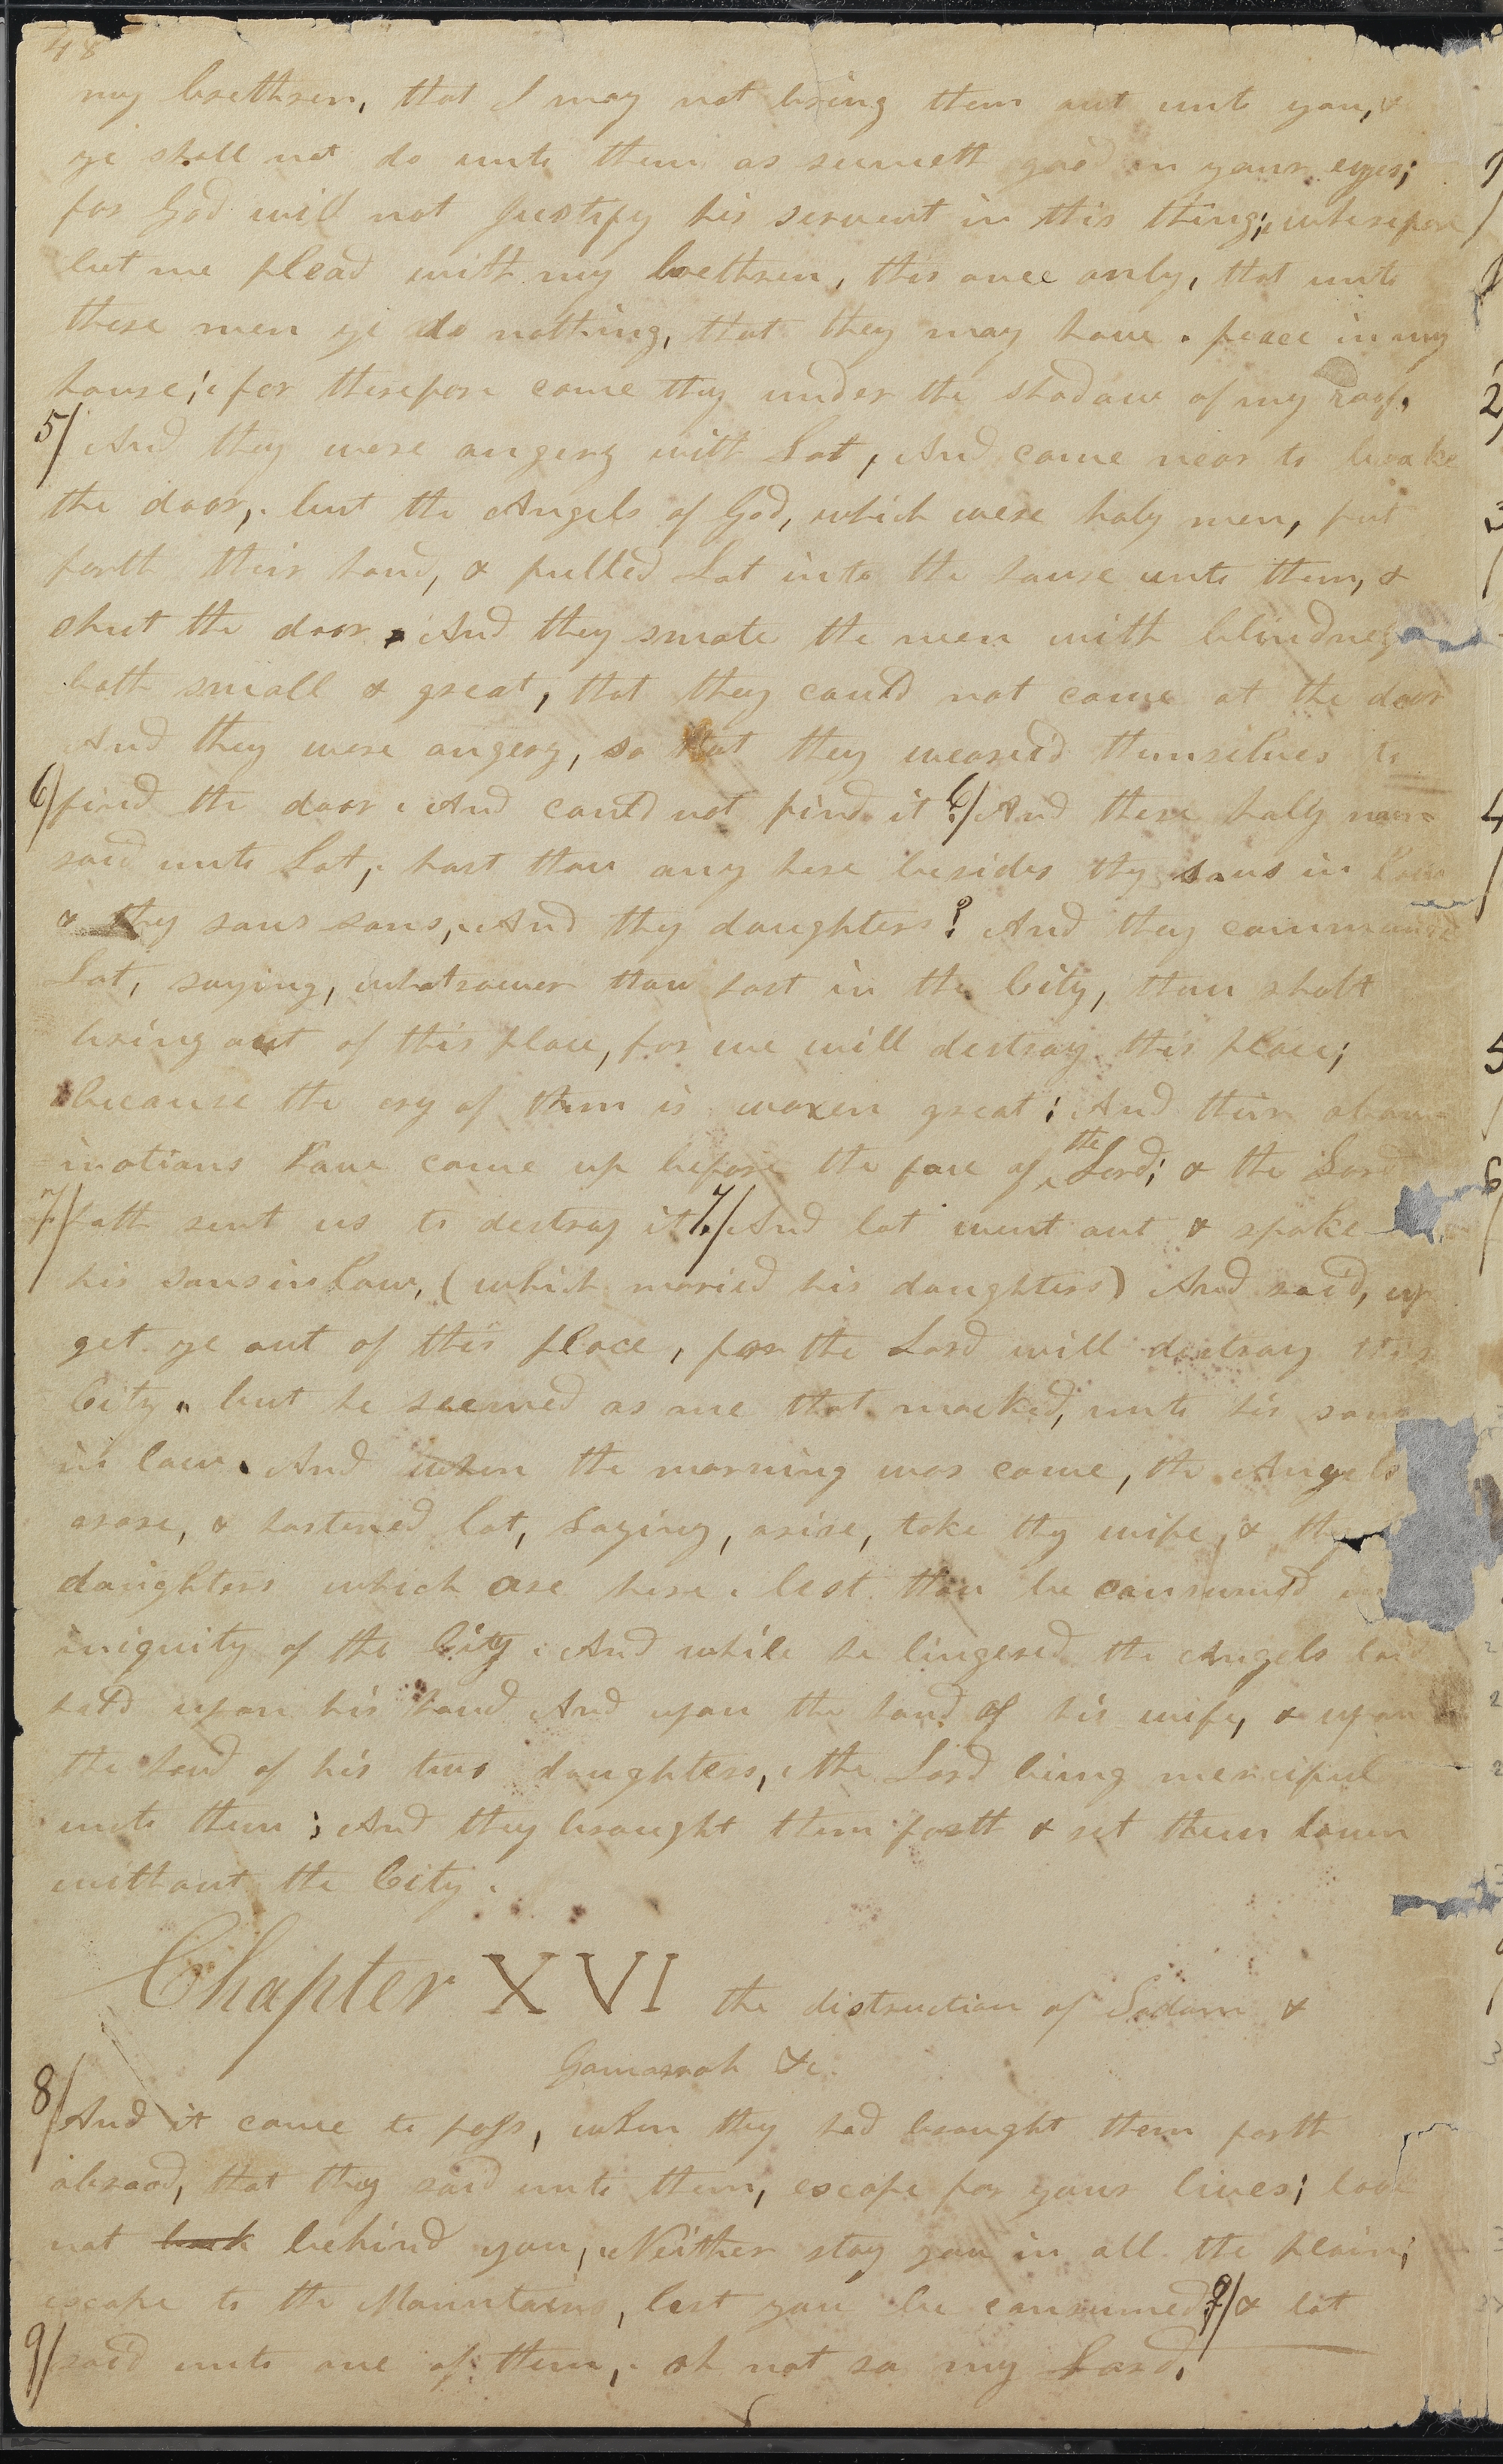 48
my brethren, that I may not bring them out unto you, &
ye shall not do unto them as seemeth good in your eyes;
for God will not Justify his servent in this thing; wherefore
let me plead with my brethren, this once only, that unto
these men ye do nothing, that they may have peace in my
house; for therefore came they under the shadow of my roof.
5/ And they were angery with Lot, And came near to brake
the door, but the Angels of God, which were holy men, put
forth their hand, & pulled Lot into the house unto them, &
shut the door. And they smote the men with blindness
both small & great, that they could not come at the door
And they were angery, so that they wearied themselves to
6/ find the door. And could not find it 6/ And these holy men
said unto Lot, hast thou any here besides thy sons in law
& thy sons sons, And thy daughters? And they commanded
Lot, saying, whatsoever thou hast in the City, thou shalt
bring out of this place, for we will destroy this place;
because the cry of them is waxen great; And their abom-
inations have come up before the face of the Lord; & the Lord
7/ hath sent us to destroy it. 7/ And lot went out & spake
his sons in law, (which maried his daughters) And said, up
get ye out of this place, for the Lord will destroy this
City. but he seemed as one that mocked, unto his sons
in law. And when the morning was come, the Angels
arose, & hastened lot, Saying, arise, take thy wife, & thy
daughters which are here. lest thou be consumed in
iniquity of the City. And while he lingered the Angels laid
hold upon his hand And upon the hand of his wife, & upon
the hand of his two daughters, the Lord being merciful
unto them; And they brought them forth & set them down
without the City.
Chapter XVI the distruction of Sodom &
Gomorrah &c.
8/ And it came to pass, when they had brought them forth
abroad, that they said unto them, escape for your lives; look
not back behind you, Neither stay you in all the plain;
escape to the Mountains, lest you be consumed. 9/ & lot
9/ said unto one of them, oh not so my Lord.